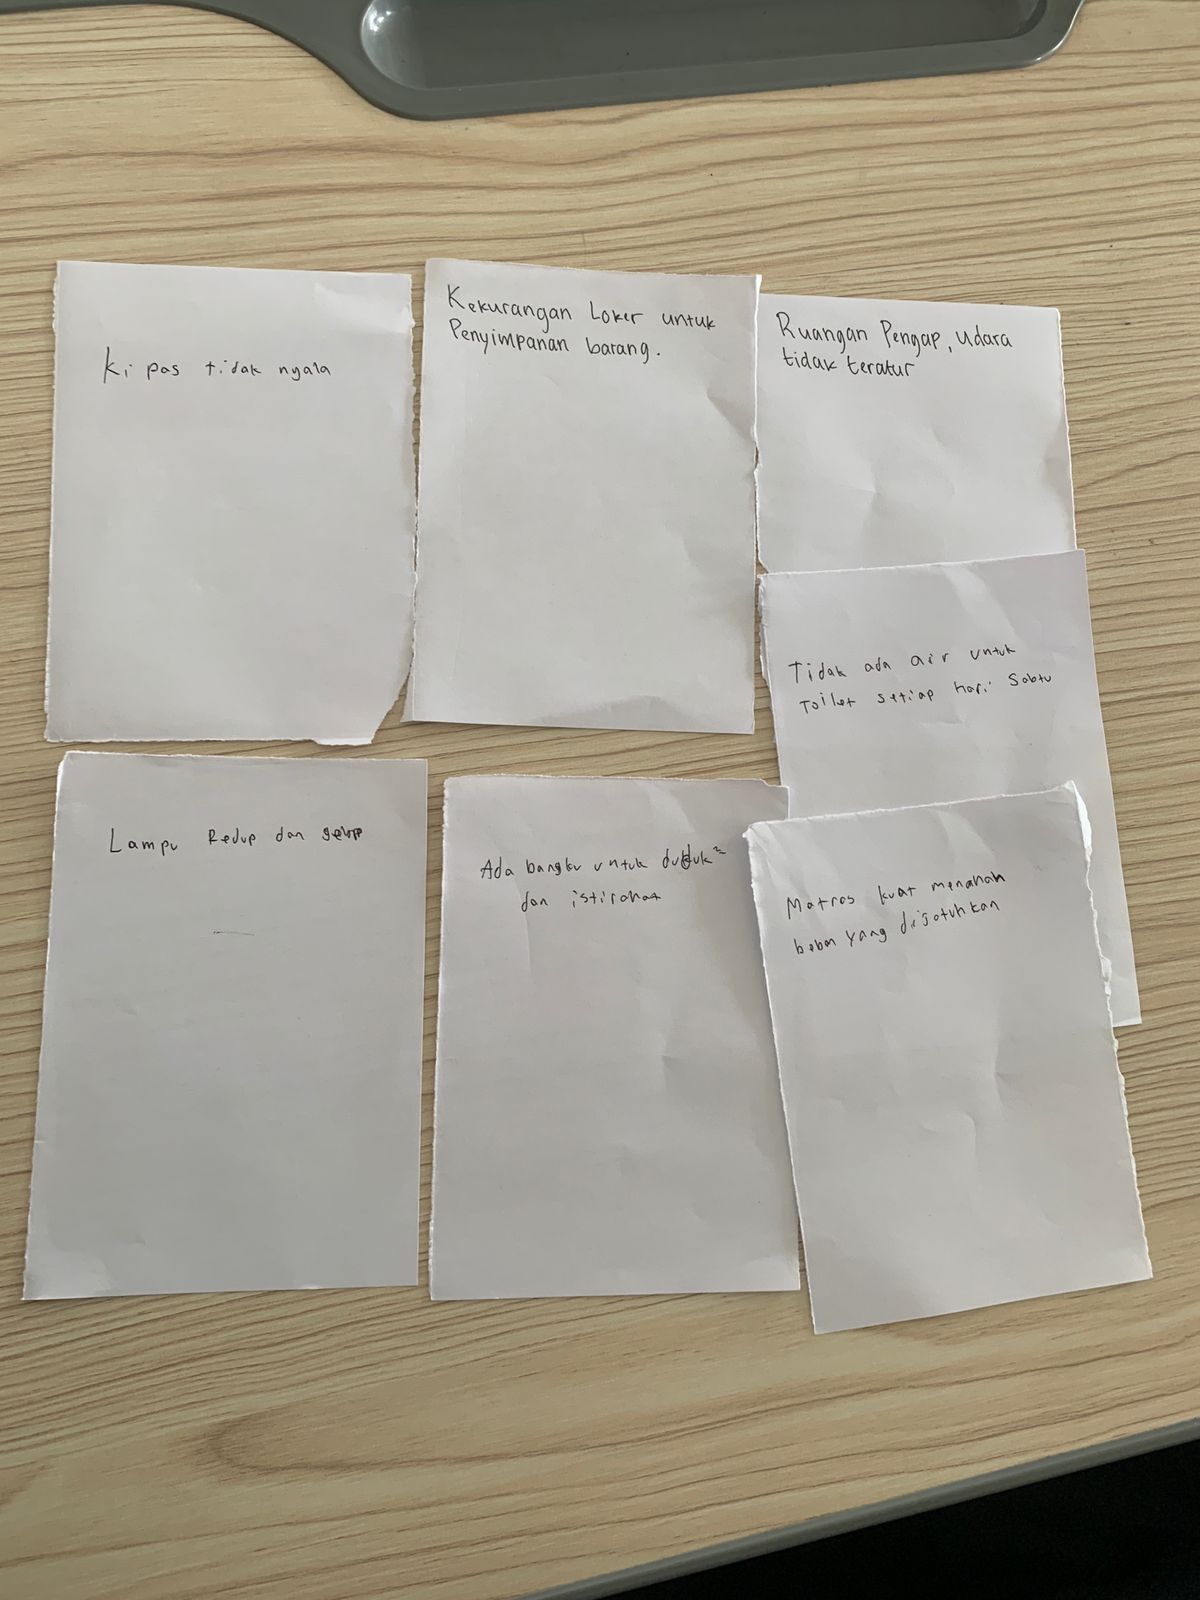 Kipas tidak nyala
Kekurangan Loker untuk
Penyimpanan barang.
Ruangan Pengap, udara
tidak teratur
Tidak ada air untuk
Toilet setiap hari Sabtu
Lampu Redup dan gelap
Ada bangku untuk duduk²
dan istirahat
Matras kuat menahan
beban yang dijatuhkan